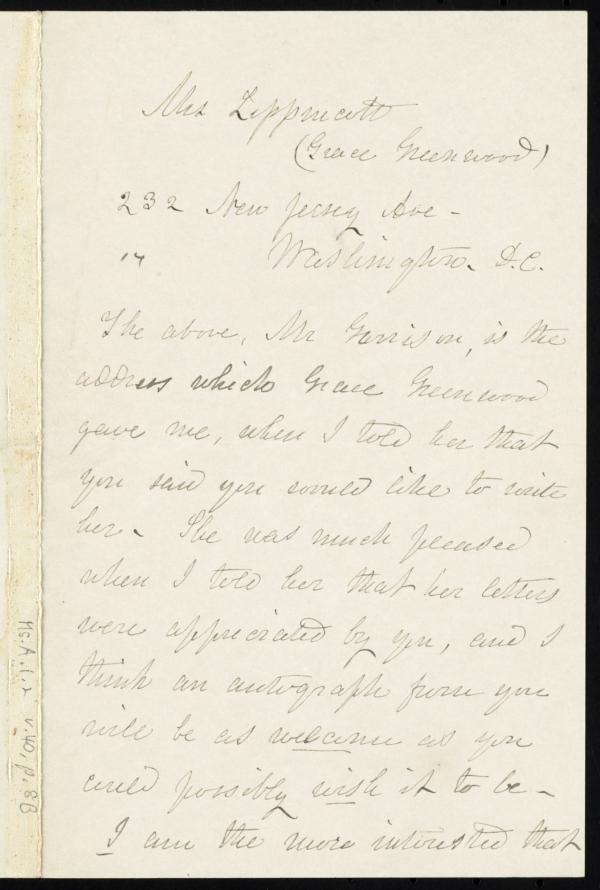 Mrs Lippincott
(Grace Greenwood)
232 New Jersey Ave -
" Washington. D.C.
The above, Mr Garrison, is the
address which Grace Greenwood
gave me, when I told her that
you said you would like to write
her - She was much pleased
when I told her that her letters
were appreciated by you, and I
think an autograph from you
will be as welcome as you
could possibly wish it to be -
I am the more interested that
Ms. A. 1. 2 v. 40, p. 8B